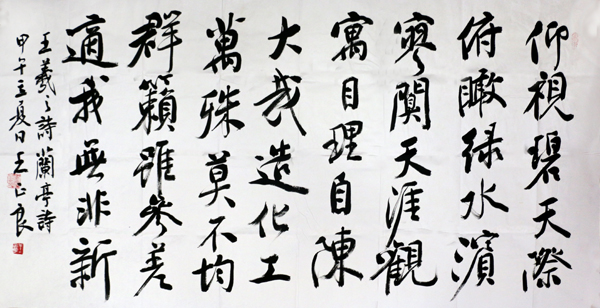 仰視碧天際
俯瞰綠水濱
寥闃天涯觀
寓目理自陳
大哉造化工
萬殊莫不均
群籟雖參差
適我無非新
王羲之詩蘭亭詩
甲午夏日王正良